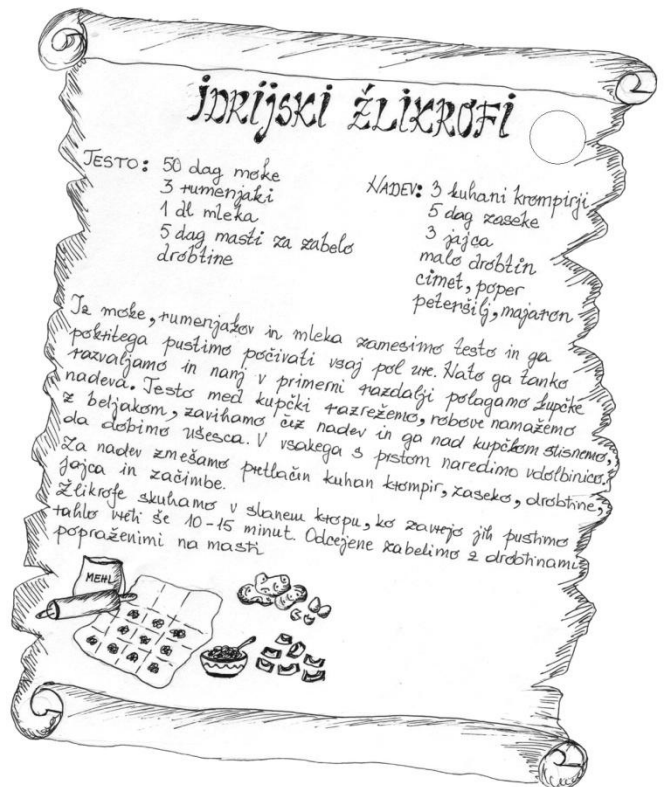 IDRIJSKI ŽLIKROFI
TESTO: 50 dag moke
3 rumenjaki
1 dl mleka
5 dag masti za zabelo
drobtine
NADEV: 3 kuhani krompirji
5 dag zaseke
3 jajca
malo drobtin
cimet, poper
peteršilj, majaron
Iz moke, rumenjakov in mleka zamesimo testo in ga
pokritega pustimo počivati vsaj pol ure. Nato ga tanko
razvaljamo in nanj v primerni razdalji polagamo kupčke
nadeva. Testo med kupčki razrežemo, robove namažemo
z beljakom, zavihamo čez nadev in ga nad kupčkom stisnemo,
da dobimo ušesca. V vsakega s prstom naredimo vdolbinico.
Za nadev zmešamo pretlačin kuhan krompir, zaseko, drobtine,
jajca in začimbe.
Žlikrofe skuhamo v slanem kropu, ko zavrejo jih pustimo
rahlo vreti še 10-15 minut. Odcejene zabelimo z drobtinami
popraženimi na masti
MEHL